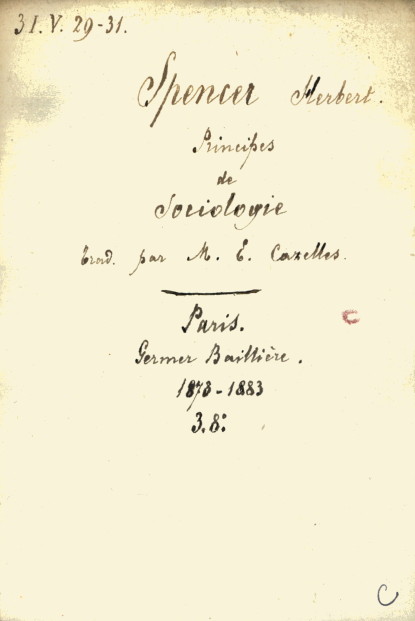 31. V. 29-31.
Spencer Herbert.
Principes
de
Sociologie
trad. par M. E. Cazelles.
Paris.
Germer Baillière.
1878-1883
3.8:
C